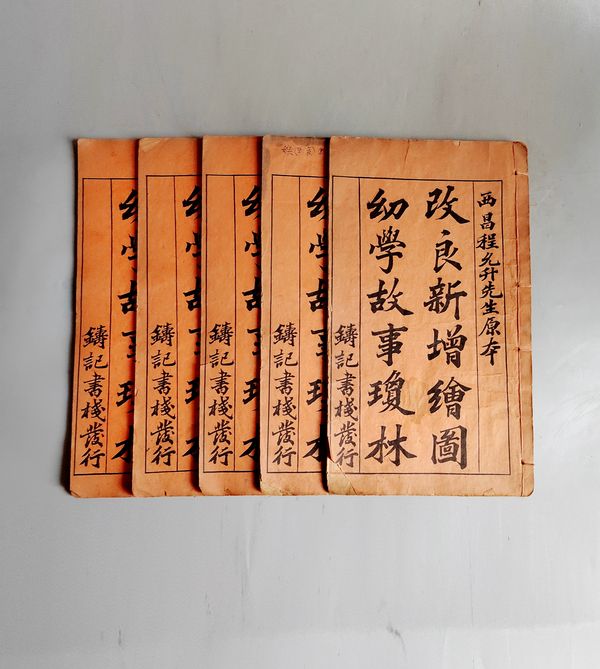 西昌程允升先生原本
改良新增繪圖
幼學故事瓊林
鑄記書棧發行
幼學故事瓊林
鑄記書棧發行
幼學故事瓊林
鑄記書棧發行
幼學故事瓊林
鑄記書棧發行
幼學故事瓊林
鑄記書棧發行